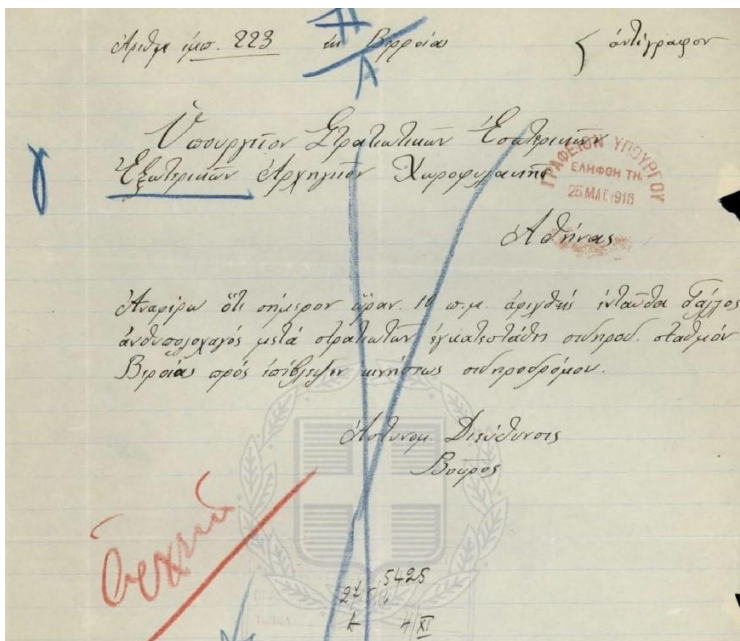 Ἀριθμ. ἐμπ. 223 ἐκ Βερροίας ἀντίγραφον
Α
Ὑπουργεῖον Στρατιωτικῶν Ἐσωτερικῶν
Ἐξωτερικῶν Ἀρχηγεῖον Χωροφυλακῆς
ΓΡΑΦΕΙΟΝ ΥΠΟΥΡΓΟΥ
ΕΛΗΦΘΗ ΤΗ
25 ΜΑΪ. 1916
Ἀθήνας
Ἀναφέρω ὅτι σήμερον ὥραν π.μ. ἀφιχθείς ἐνταῦθα Γάλλος
ἀνθυπολοχαγός μετά στρατιωτῶν ἐγκατεστάθη σιδηροδ. σταθμόν
Βεροίας πρός ἐπίβλεψιν κινήσεως σιδηροδρόμου.
Ἀστυνομ. Διεύθυνσις
Βοῦρος
Ἀρχεῖον
5425
XI